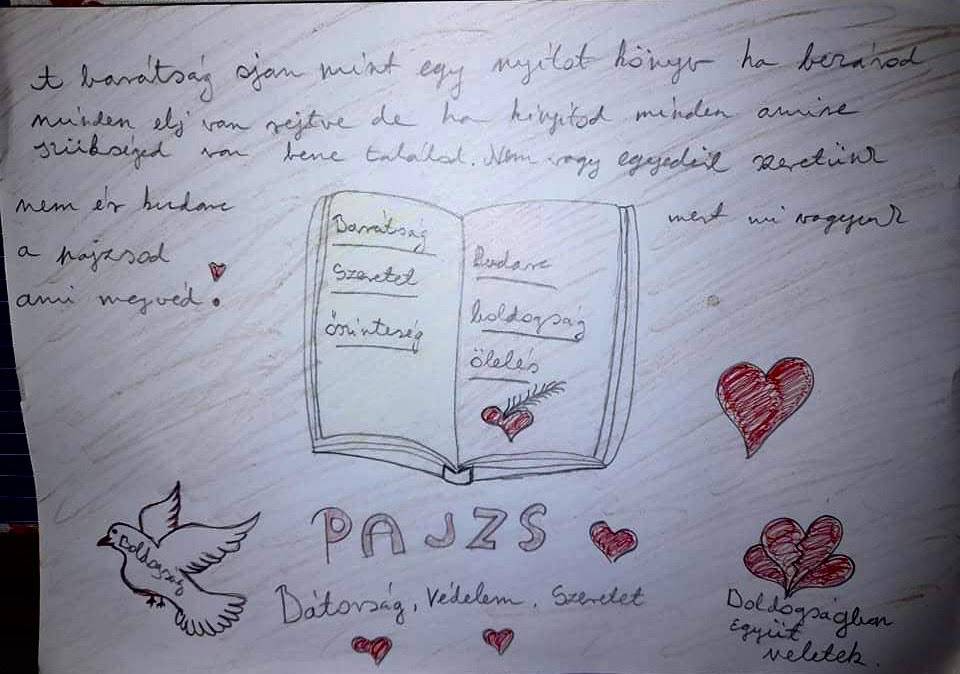 A barátság ojan mint egy nyitot könyv ha bezárod
minden elj van rejtve de ha kinyitod minden amire
szükséged van bene találod. Nem vagy egyedül szeretünk
nem ér kudarc mert mi vagyunk
a pajzsod
ami megvéd!
Barátság
Szeretet
őszinteség
kudarc
boldogság
ölelés
Boldogság
PAJZS
Bátorság, Védelem, Szeretet
Boldogságban
együt
veletek.